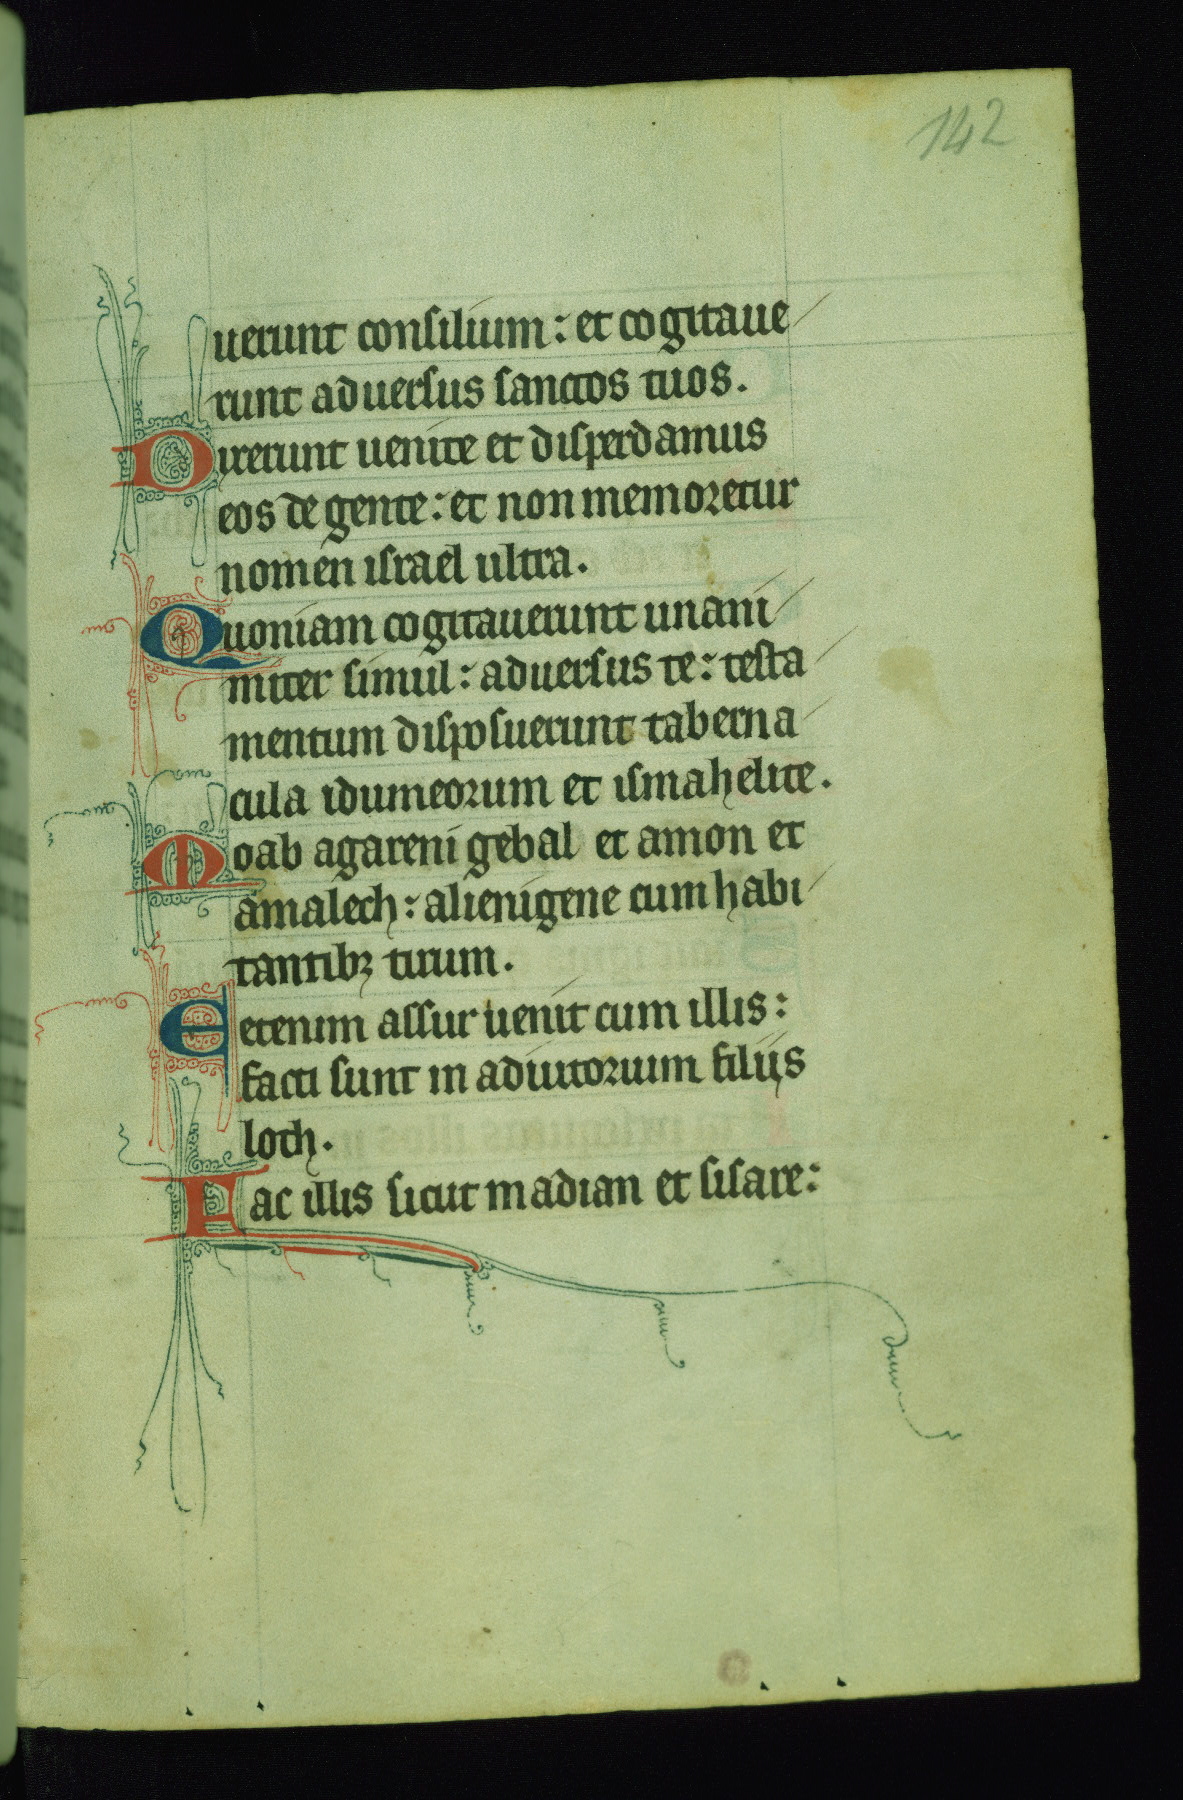 142
uerunt consilium: et cogitaue
runt aduersus sanctos tuos.
Dixerunt uenite et disperdamus
eos de gente: et non memoretur
nomen israel ultra.
Quoniam cogitauerunt unani
miter simul: aduersus te: testa
mentum disposuerunt taberna
cula idumeorum et ismahelite.
Moab agareni gebal et amon et
amalech: alienigene cum habi
tantibꝫ tirum.
Eetenim assur uenit cum illis:
facti sunt in adiutorium filijs
loth.
Fac illis sicut madian et sisare: